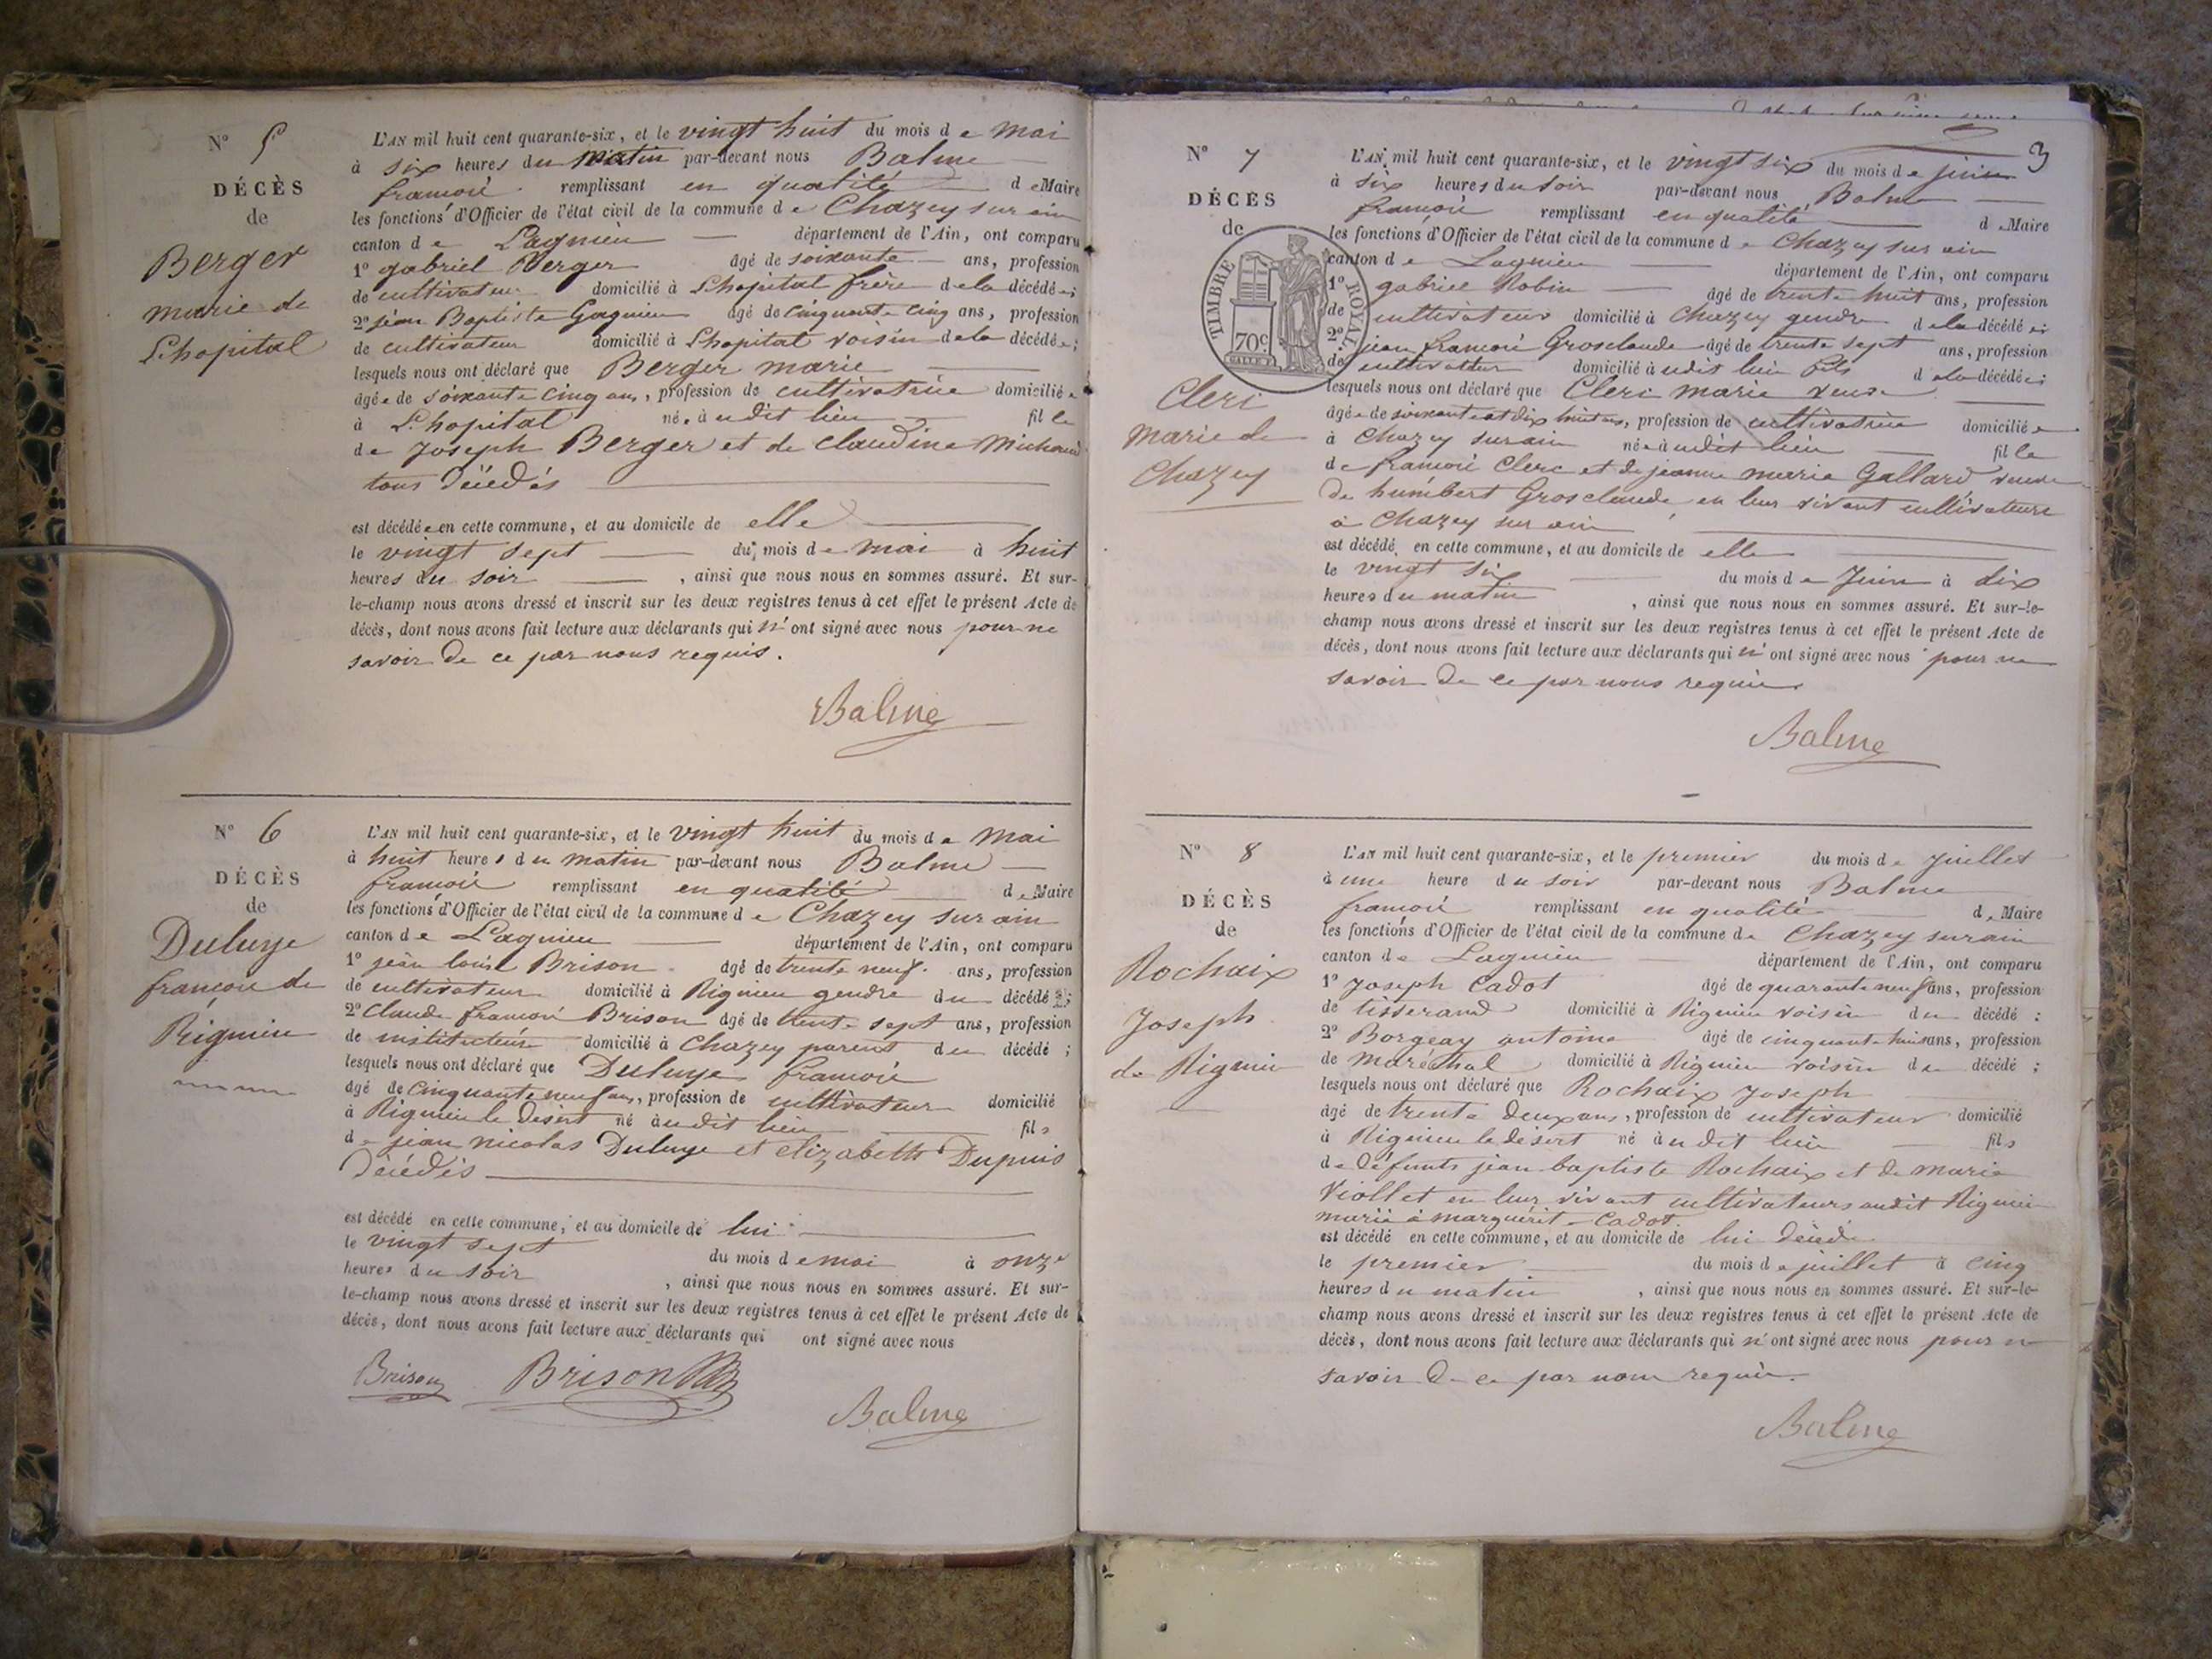 N° 5
DÉCÈS
de
Berger
marie de
Lhopital
L'AN mil huit cent quarante-six, et le vingt huit du mois de mai
à six heures du matin par-devant nous Balme
françois remplissant en qualité de Maire
les fonctions d'Officier de l'état civil de la commune de Chazey sur ain
canton de Lagnieu département de l'Ain, ont comparu
1° gabriel Berger âgé de soixante ans, profession
de cultivateur domicilié à Lhopital frère de la décédée;
2° jean Baptiste Gagnieu âgé de cinquante cinq ans, profession
de cultivateur domicilié à Lhopital voisin de la décédée;
lesquels nous ont déclaré que Berger marie
âgée de soixante cinq ans, profession de cultivatrice domiciliée
à Lhopital née audit lieu fille
de Joseph Berger et de Claudine Michaud
tous décédés
est décédée en cette commune, et au domicile de elle
le vingt sept du mois de mai à huit
heures du soir, ainsi que nous nous en sommes assuré. Et sur-
le-champ nous avons dressé et inscrit sur les deux registres tenus à cet effet le présent Acte de
décès, dont nous avons fait lecture aux déclarants qui n'ont signé avec nous pour ne
savoir de ce par nous requis.
Balme
N° 6
DÉCÈS
de
Duluye
françois de
Rignieu
L'AN mil huit cent quarante-six, et le vingt huit du mois de mai
à huit heures du matin par-devant nous Balme
françois remplissant en qualité de Maire
les fonctions d'Officier de l'état civil de la commune de Chazey sur ain
canton de Lagnieu département de l'Ain, ont comparu
1° jean louis Brison âgé de trente neuf ans, profession
de cultivateur domicilié à Rignieu gendre du décédé;
2° Claude françois Brison âgé de trente sept ans, profession
de instituteur domicilié à Chazey parent du décédé;
lesquels nous ont déclaré que Duluye françois
âgé de cinquante neuf ans, profession de cultivateur domicilié
à Rignieu le désert né audit lieu fils
de jean nicolas Duluye et elizabeth Dupuis
décédés
est décédé en cette commune, et au domicile de lui
le vingt sept du mois de mai à onze
heures du soir, ainsi que nous nous en sommes assuré. Et sur-
le-champ nous avons dressé et inscrit sur les deux registres tenus à cet effet le présent Acte de
décès, dont nous avons fait lecture aux déclarants qui ont signé avec nous
Brison Brison
Balme
3
N° 7
DÉCÈS
de
TIMBRE ROYAL
70c
Cleri
marie de
Chazey
L'AN mil huit cent quarante-six, et le vingt six du mois de juin
à six heures du soir par-devant nous Balme
françois remplissant en qualité de Maire
les fonctions d'Officier de l'état civil de la commune de Chazey sur ain
canton de Lagnieu département de l'Ain, ont comparu
1° gabriel Robin âgé de trente huit ans, profession
de cultivateur domicilié à Chazey gendre de la décédée;
2° jean françois Grosclaude âgé de trente sept ans, profession
de cultivateur domicilié audit lieu fils de la décédée;
lesquels nous ont déclaré que Cleri marie veuve
âgée de soixante et dix huit ans, profession de cultivatrice domiciliée
à Chazey sur ain née audit lieu fille
de françois Clerc et de jeanne marie Gallard veuve
de humbert Grosclaude en leur vivant cultivateurs
à Chazey sur ain
est décédé en cette commune, et au domicile de elle
le vingt six du mois de Juin à dix
heures du matin, ainsi que nous nous en sommes assuré. Et sur-le-
champ nous avons dressé et inscrit sur les deux registres tenus à cet effet le présent Acte de
décès, dont nous avons fait lecture aux déclarants qui n'ont signé avec nous pour ne
savoir de ce par nous requis.
Balme
N° 8
DÉCÈS
de
Rochaix
Joseph
de Rignieu
L'AN mil huit cent quarante-six, et le premier du mois de juillet
à une heure du soir par-devant nous Balme
françois remplissant en qualité de Maire
les fonctions d'Officier de l'état civil de la commune de Chazey sur ain
canton de Lagnieu département de l'Ain, ont comparu
1° Joseph Cadot âgé de quarante neuf ans, profession
de tisserand domicilié à Rignieu voisin du décédé;
2° Borgeay antoine âgé de cinquante huit ans, profession
de maréchal domicilié à Rignieu voisin du décédé;
lesquels nous ont déclaré que Rochaix Joseph
âgé de trente deux ans, profession de cultivateur domicilié
à Rignieu le désert né audit lieu fils
de défunts jean baptiste Rochaix et de marie
Viollet en leur vivant cultivateurs audit Rignieu
marié à marguerite Cadot.
est décédé en cette commune, et au domicile de lui décédé
le premier du mois de juillet à cinq
heures du matin, ainsi que nous nous en sommes assuré. Et sur-le-
champ nous avons dressé et inscrit sur les deux registres tenus à cet effet le présent Acte de
décès, dont nous avons fait lecture aux déclarants qui n'ont signé avec nous pour ne
savoir de ce par nous requis.
Balme